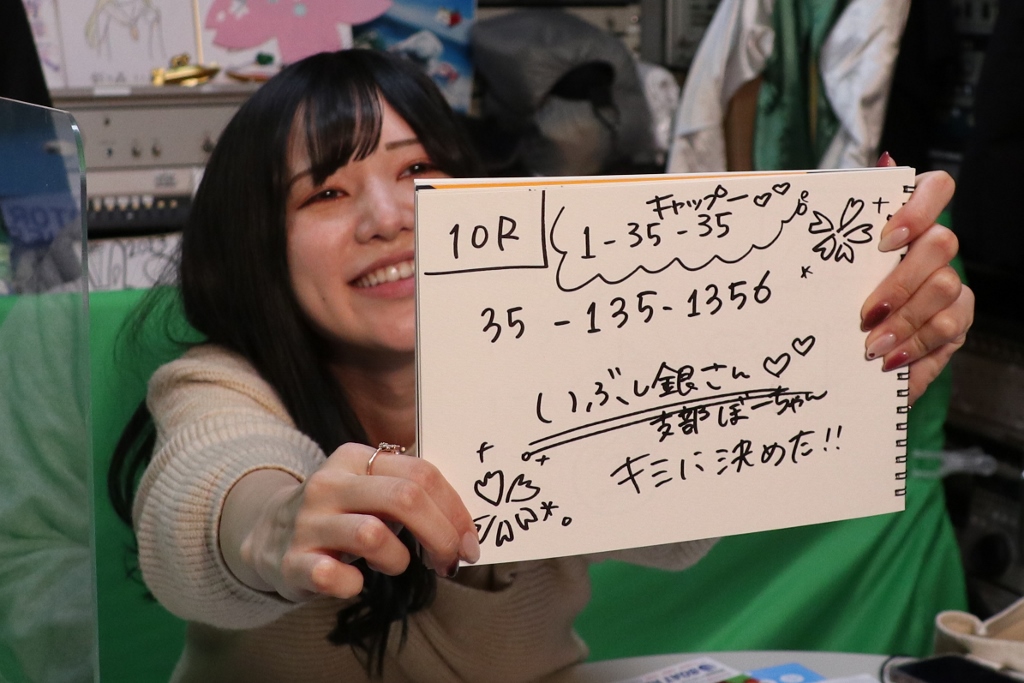 10R
キャップー♡♡
1-35-35
35-135-1356
いぶし銀さん♡♡
支部ぼーちゃん
キミに決めた!!